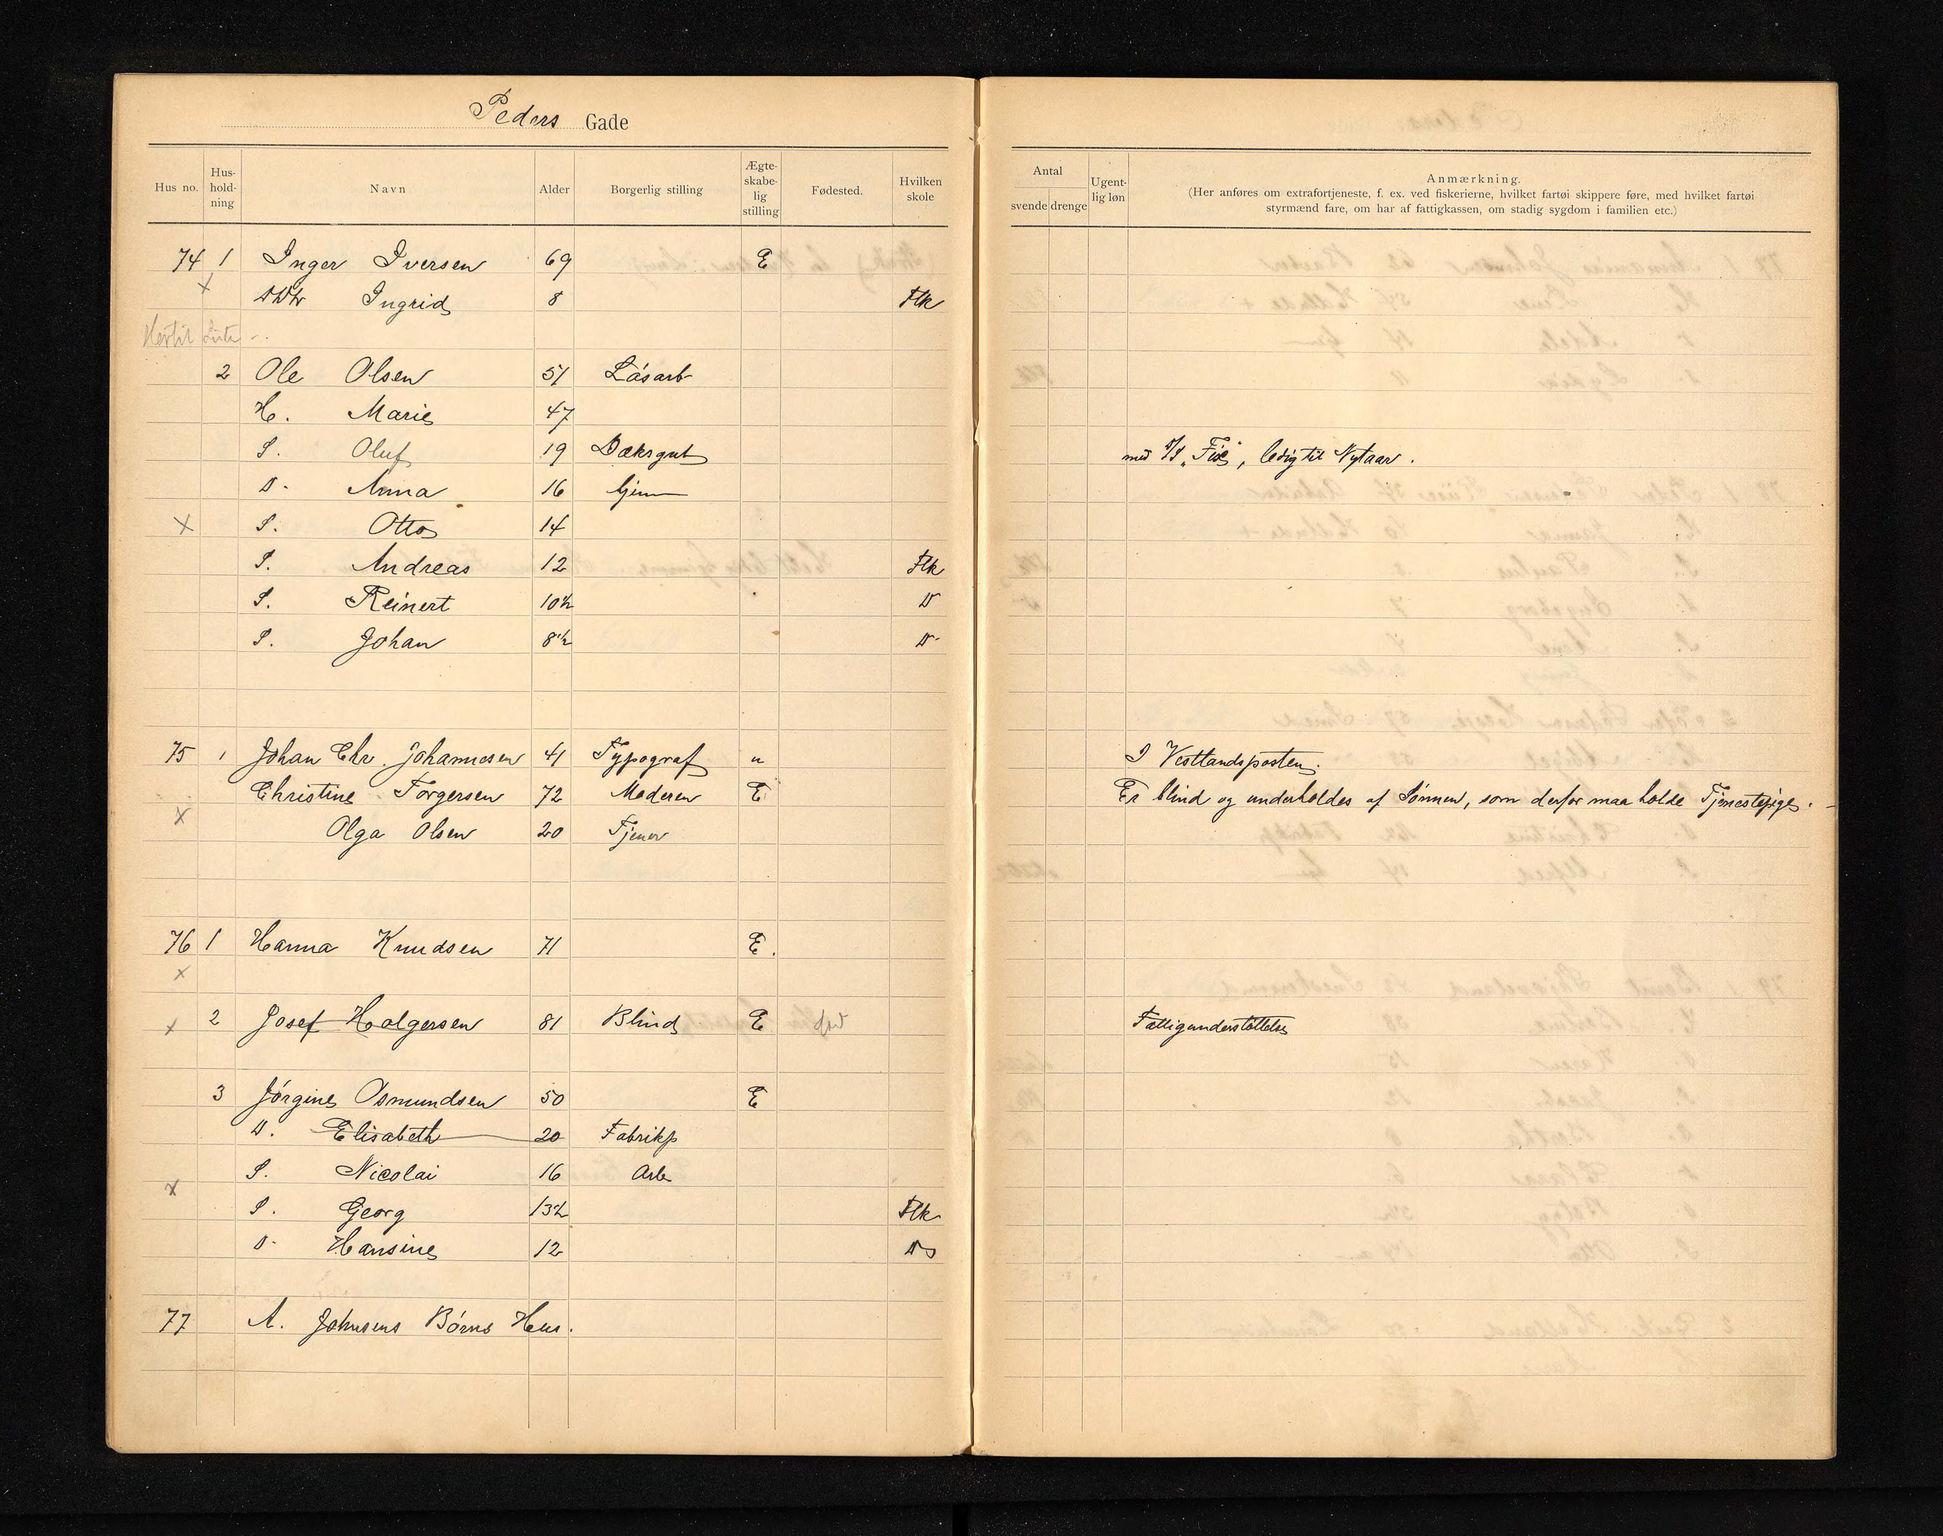 Peders Gade
Hus no. Hus-hold-ning Navn Alder Borgerlig stilling Ægte-skabe-lig stilling Fødested. Hvilken skole
Antal svende drenge Ugent-lig løn Anmærkning.
(Her anføres om extrafortjeneste, f. ex. ved fiskerierne, hvilket fartøi skippere føre, med hvilket fartøi
styrmænd fare, om har af fattigkassen, om stadig sygdom i familien etc.)
74 1 Inger Iversen 69 E
x Ingrid 8 Flk
Hertil Liste
2 Ole Olsen 51 Løsarb
H. Marie 47
S. Oluf 19 Dæksgut med S/S ledig til Nytaar.
D. Anna 16 hjem
x S. Otto 14
S. Andreas 12 Flk
S. Reinert 10½ D
S. Johan 8½ D
75 1 Johan Chr. Johannesen 41 Typograf u I Vestlandsposten.
Christine Torgersen 72 Moderen E Er blind og underholdes af Sønnen, som derfor maa holde Tjenestepige.
x Olga Olsen 20 Tjener
76 1 Hanna Knudsen 71 E.
x
x 2 Josef Holgersen 81 Blind E død Fattigunderstøttelse
3 Jørgine Osmundsen 50 E
D. Elisabeth 20 Fabrikp
x S. Nicolai 16 Arb
S. Georg 13½ Flk
D. Hansine 12 D
77 A. Johnsens Børns Hus.